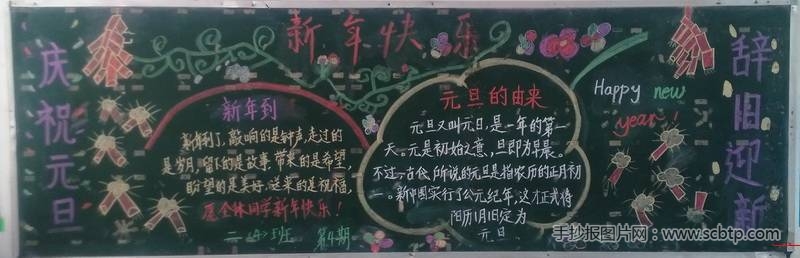 庆祝元旦
新年快乐
新年到
新年到了,敲响的是钟声,走过的
是岁月,留下的是故事,带来的是希望,
盼望的是美好,送来的是祝福,
愿全体同学新年快乐!
二〈4〉班 第4期
元旦的由来
元旦又叫元日,是一年的第一
天。元是初始之意,旦即为早晨。
不过,古代所说的元旦是指农历的正月初
一。新中国实行了公元纪年,这才正式将
阳历1月1日定为
元旦
Happy new
year!
辞旧迎新
手抄报图片网:www.scbtp.com